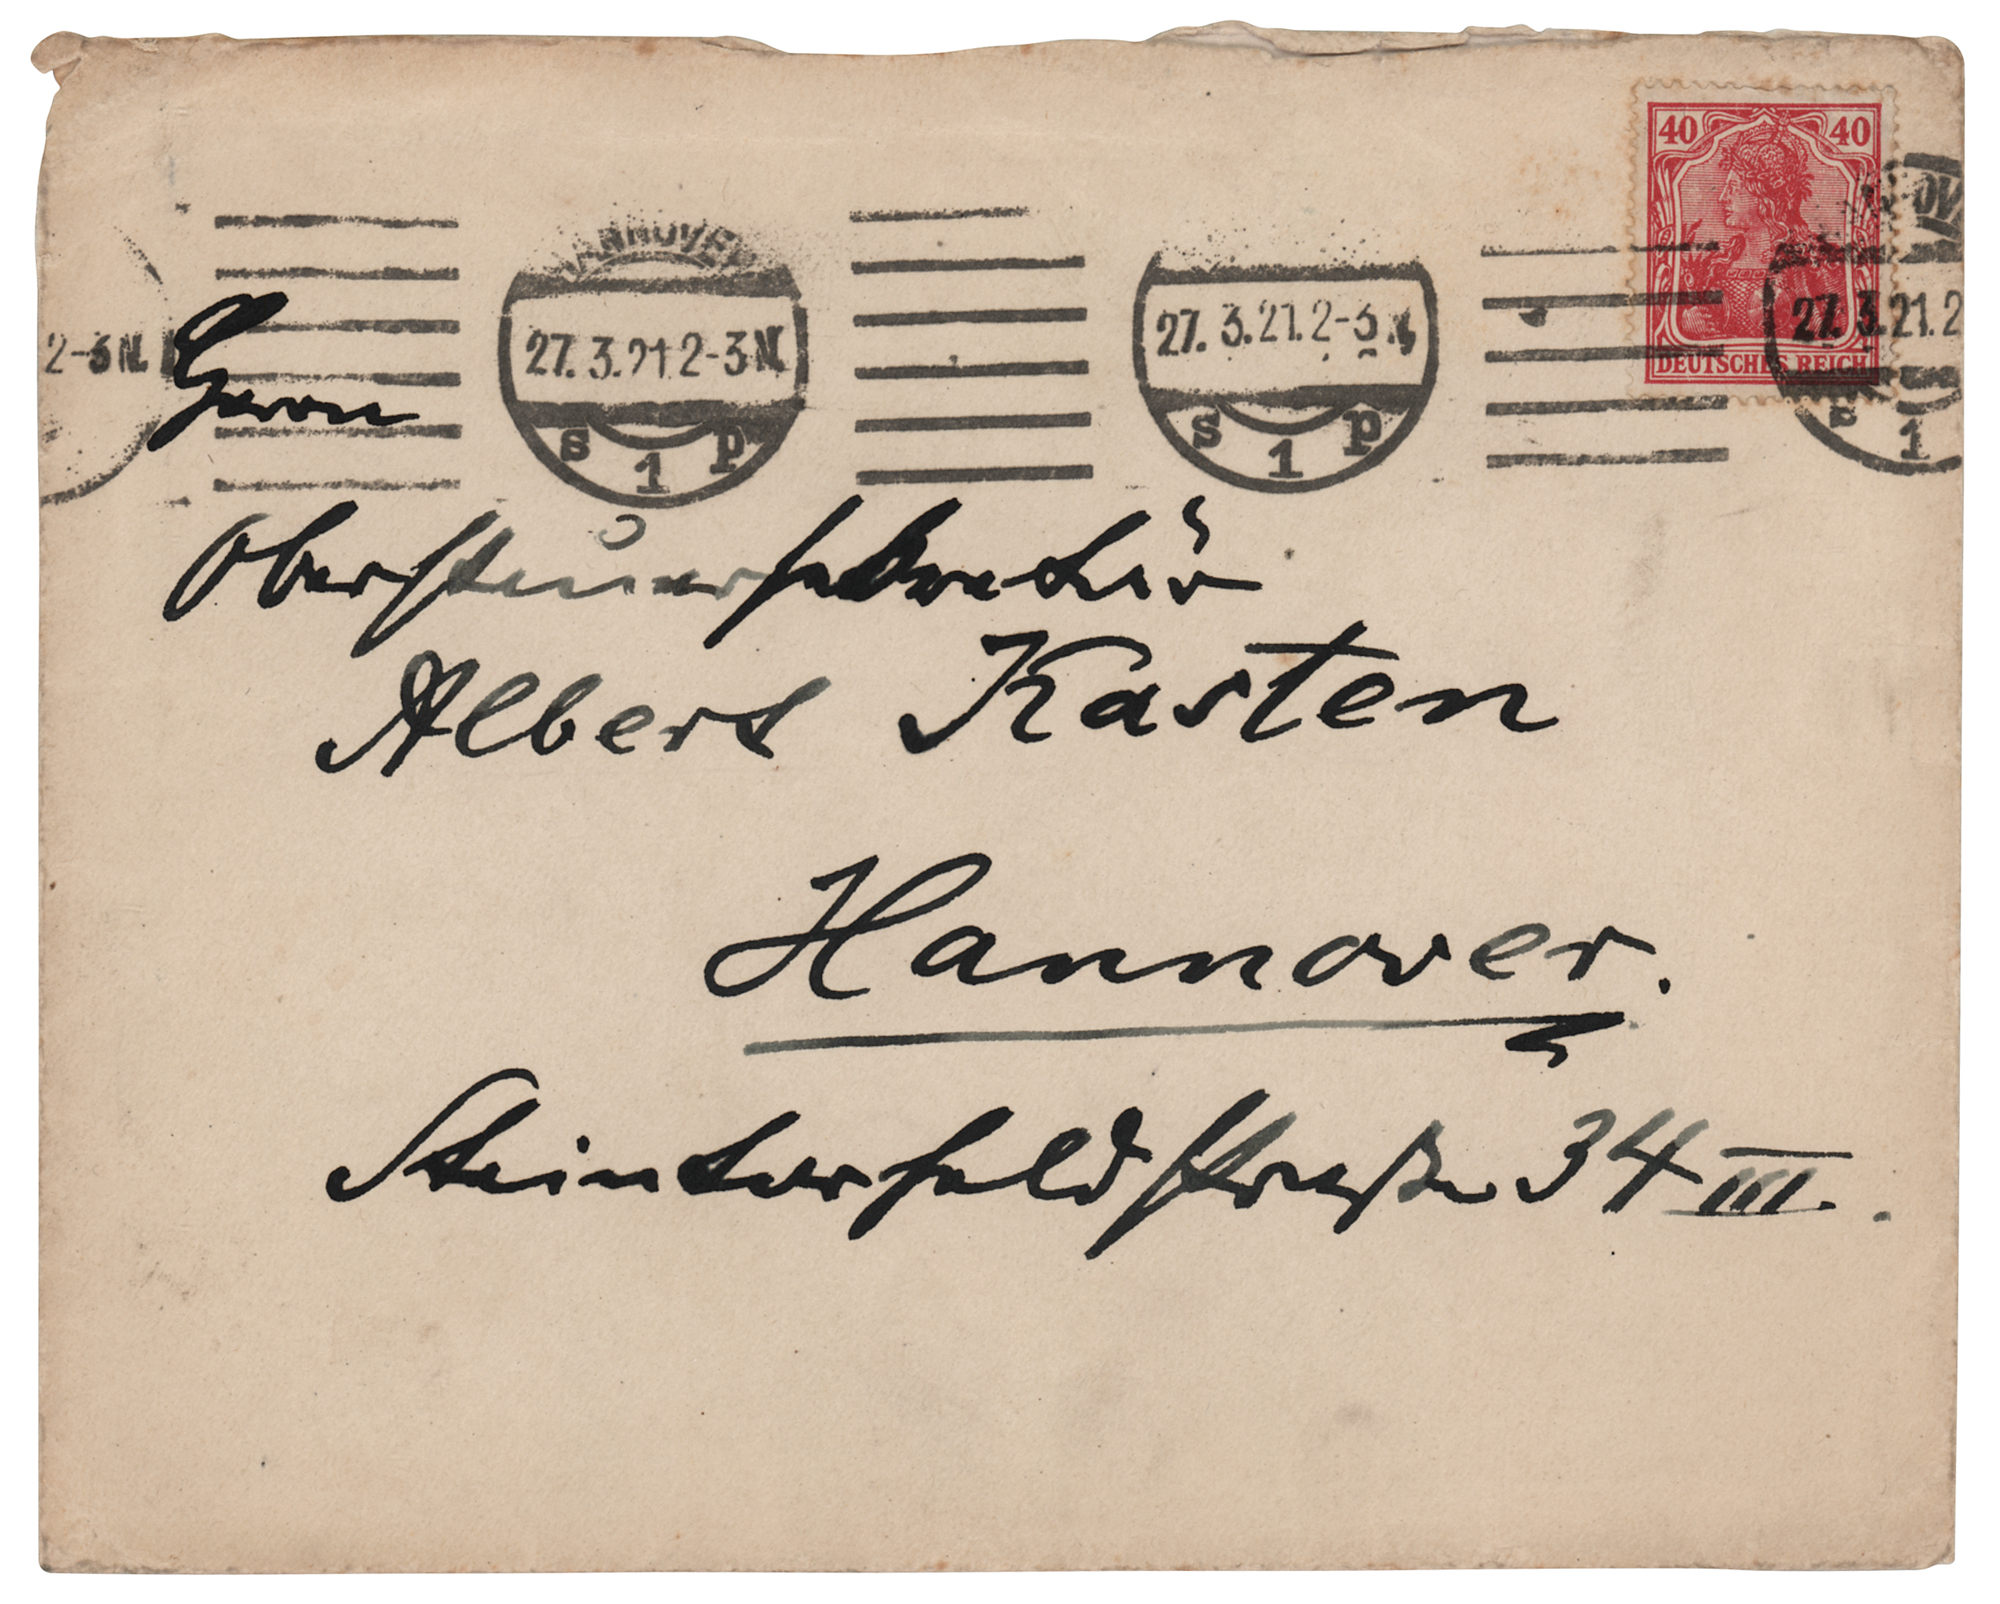 40 40
DEUTSCHES REICH
HANNOVER
2-3 N. 27.3.21.2-3 N. 27.3.21.2-3 N. 27.3.21.2
s 1 p s 1 p s 1
Herrn
Obersteuersekretär
Albert Kasten
Hannover.
Steintorfeldstraße 34 III.